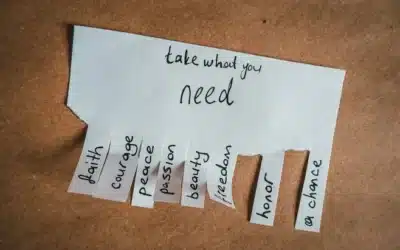 take what you
need
faith
courage
peace
passion
beauty
freedom
honor
a chance